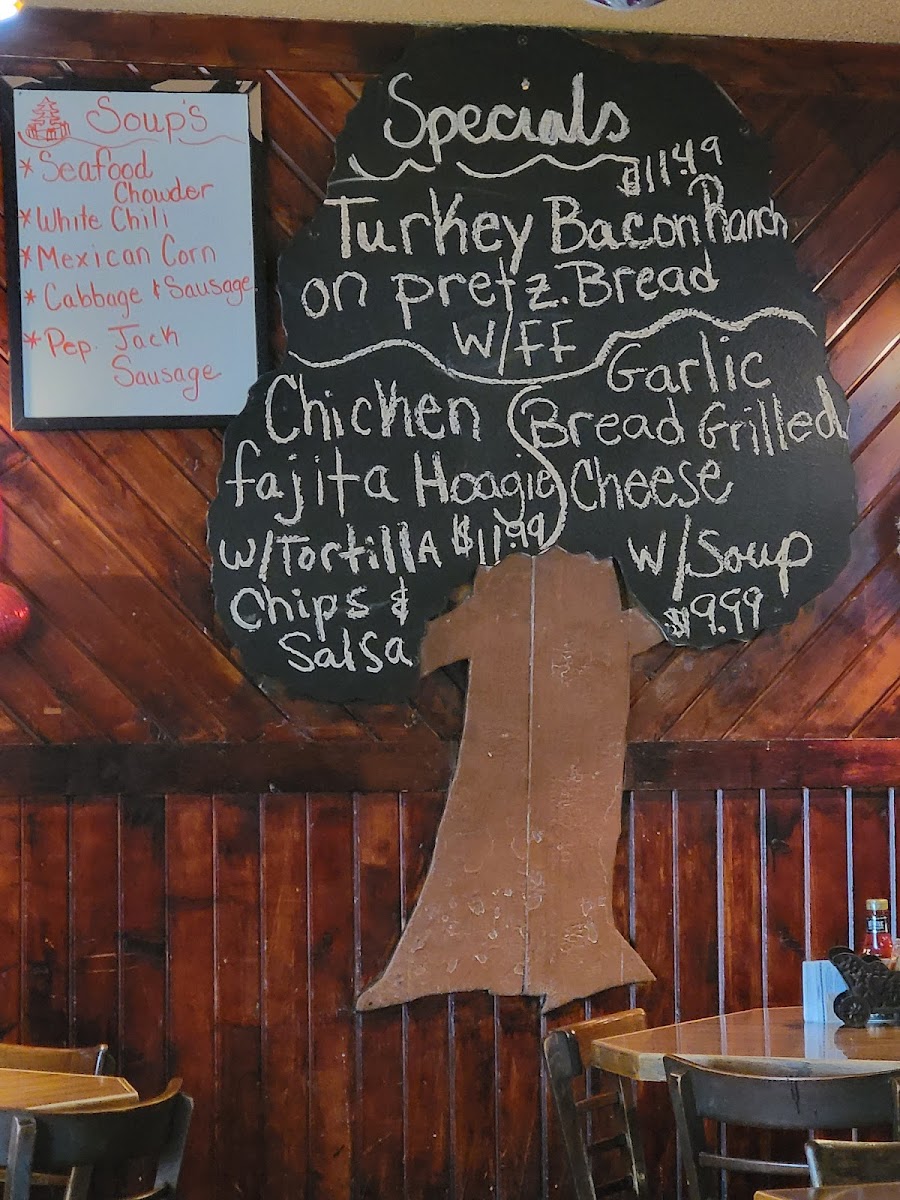 Soup's
*Seafood
Chowder
*White Chili
*Mexican Corn
*Cabbage & Sausage
*Pep. Jack
Sausage
Specials
$11.49
Turkey Bacon Ranch
on pretz. Bread
W/FF
Chicken
fajita Hoagie
W/Tortilla $11.99
Chips &
Salsa
Garlic
Bread Grilled
Cheese
W/Soup
$9.99